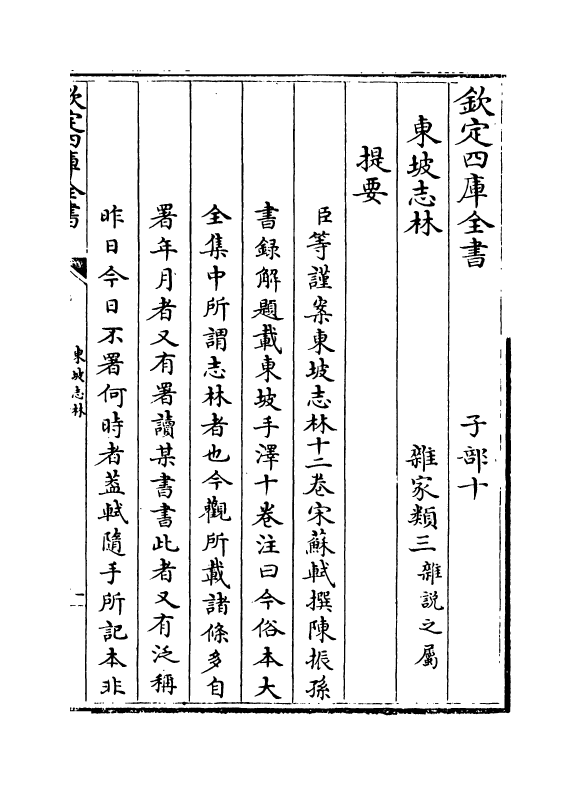 欽定四庫全書 子部十
東坡志林 雜家類三雜説之屬
提要
臣等謹案東坡志林十二卷宋蘇軾撰陳振孫
書録解題載東坡手澤十卷注曰今俗本大
全集中所謂志林者也今觀所載諸條多自
署年月者又有署讀某書書此者又有泛稱
昨日今日不署何時者葢軾隨手所記本非
欽定四庫全書
東坡志林
一